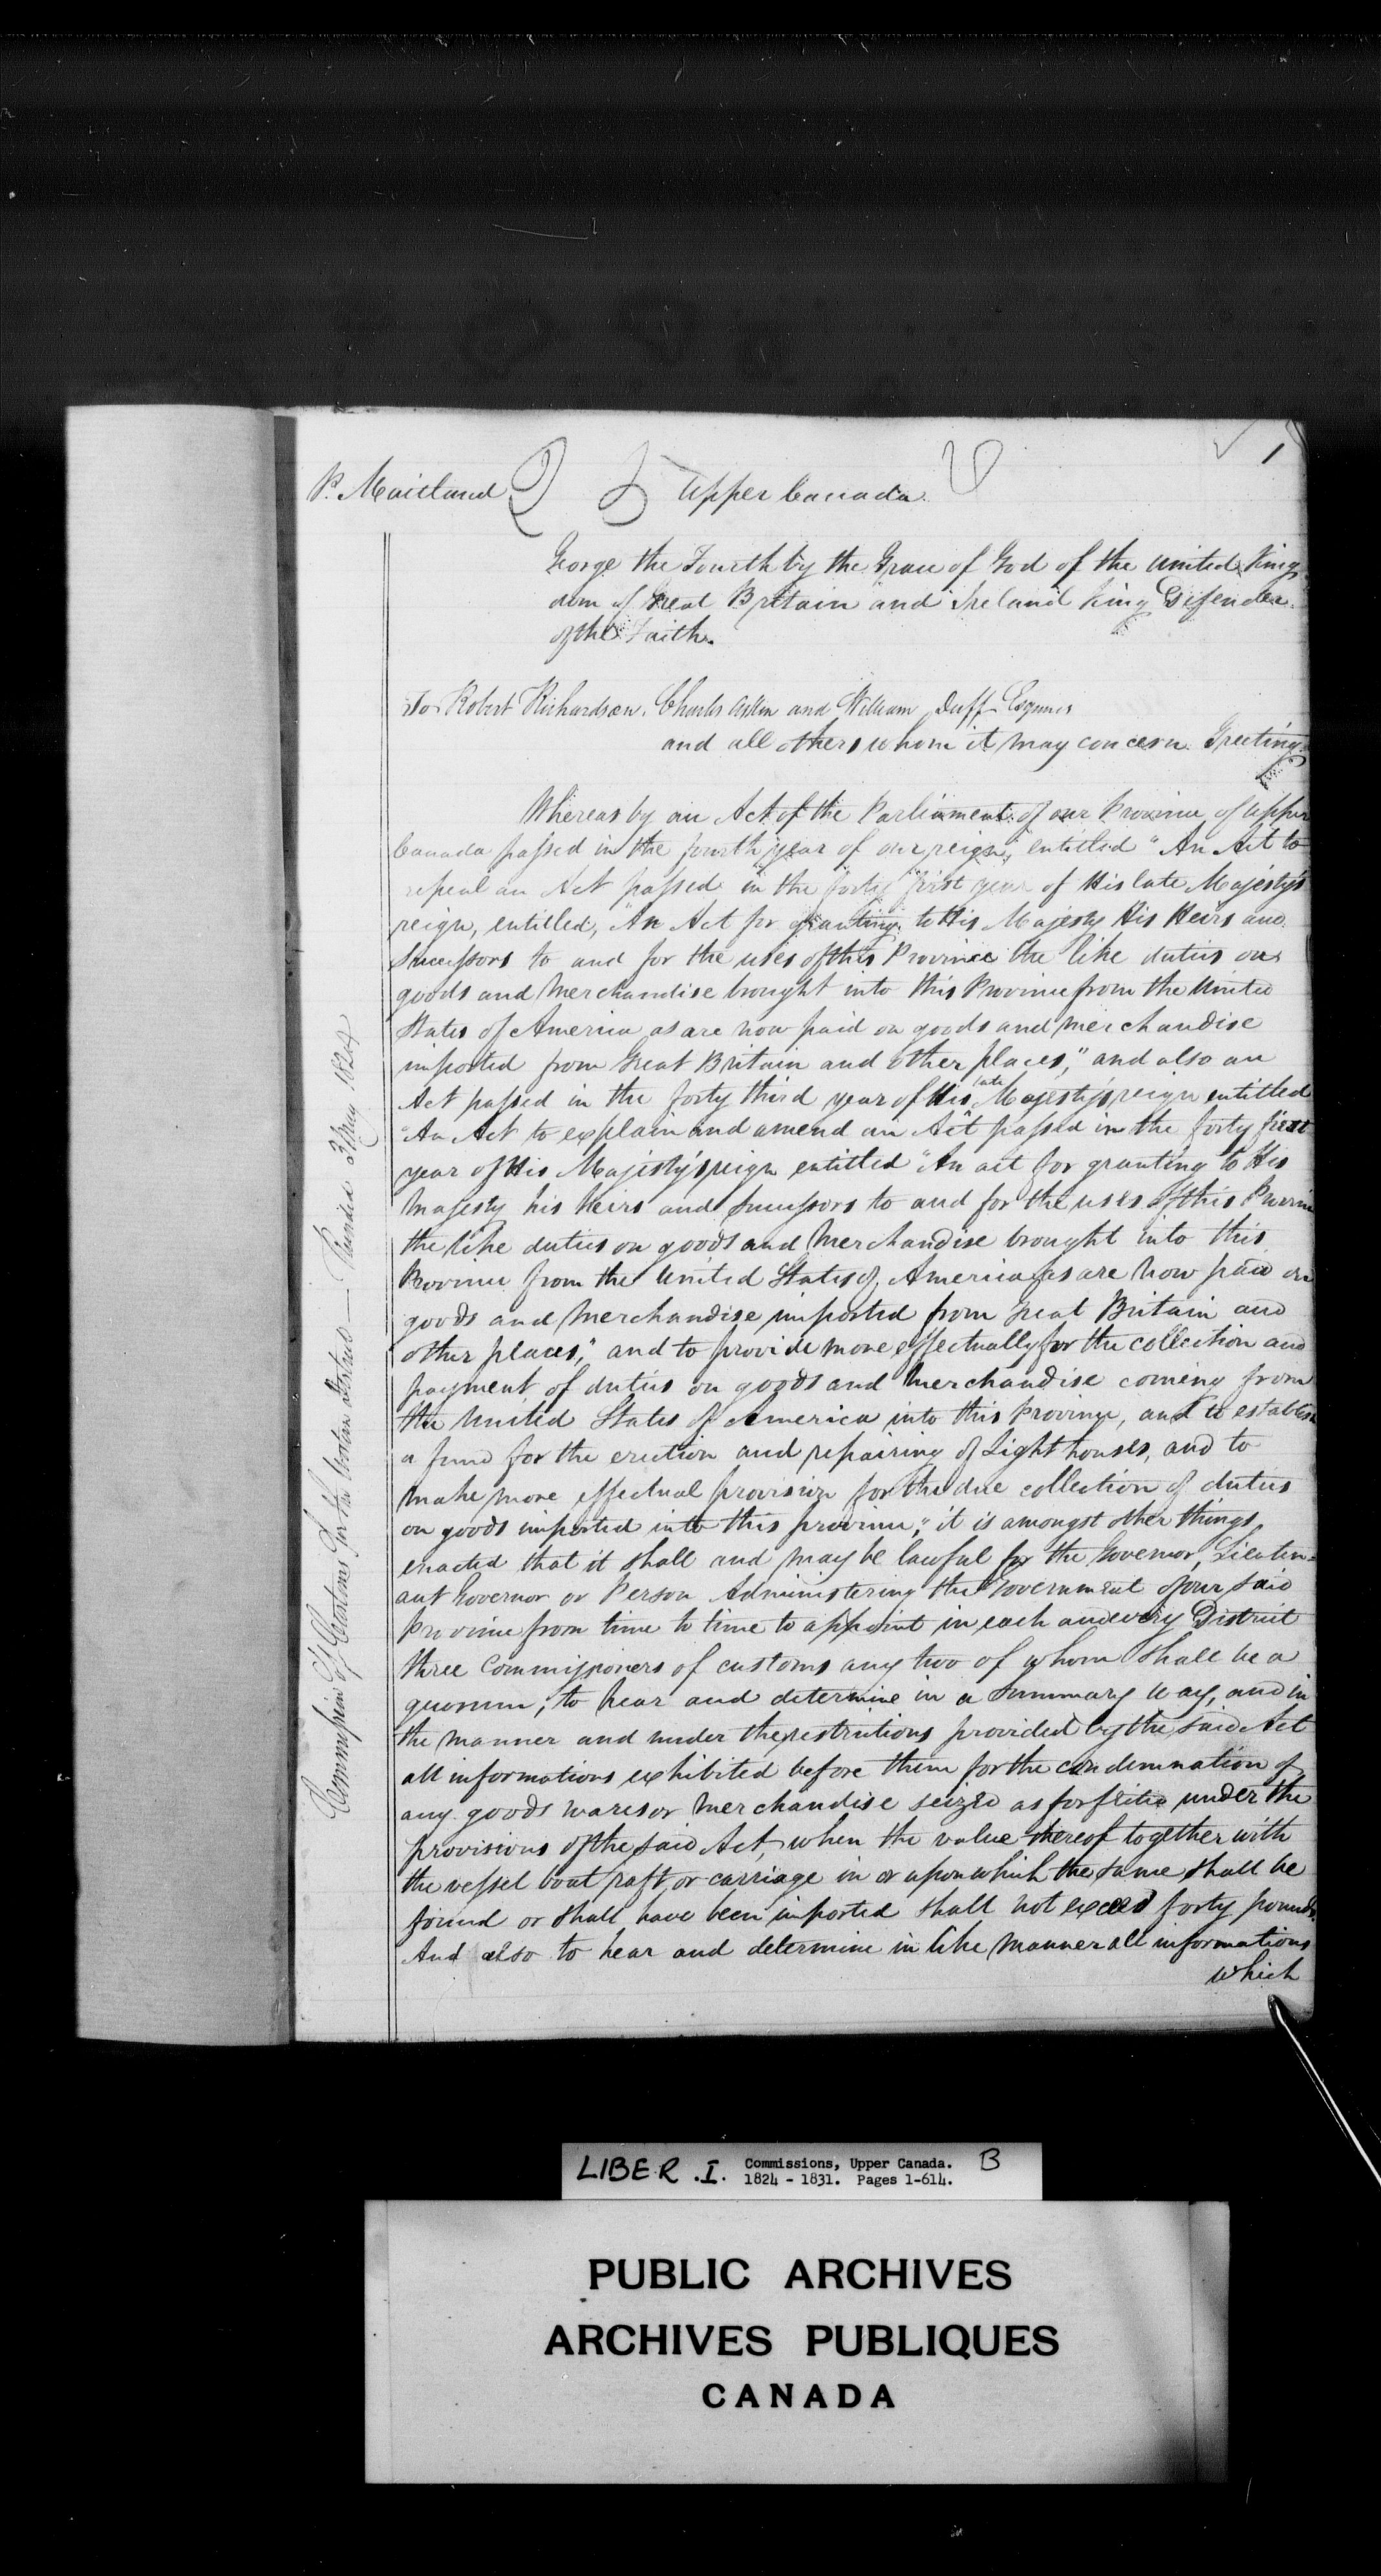 1
P. Maitland
Upper Canada
George the Fourth by the Grace of God of the United King-
dom of Great Britain and Ireland King Defender
of the Faith.
To Robert Richardson, Charles Askin and William Duff Esquires
and all others whom it may concern. Greeting.
Whereas by an Act of the Parliament of our Province of Upper
Canada passed in the fourth year of our reign, entitled "An Act to
repeal an Act passed in the forty first year of His late Majesty's
reign, entitled, "An Act for granting to His Majesty His Heirs and
Successors to and for the uses of this Province the like duties on
goods and Merchandise brought into this Province from the United
States of America as are now paid on goods and merchandise
imported from Great Britain and other places," and also an
Act passed in the forty third year of His late Majesty's reign entitled
"An Act to explain and amend an Act passed in the forty first
year of His Majesty's reign entitled "An act for granting to His
Majesty his heirs and Successors to and for the uses of this Province
the like duties on goods and Merchandise brought into this
Province from the United States of America as are now paid on
goods and Merchandise imported from Great Britain and
other places," and to provide more effectually for the collection and
payment of duties on goods and Merchandise coming from
the United States of America into this Province, and to establish
a fund for the erection and repairing of Light houses, and to
make more effectual provision for the due collection of duties
on goods imported into this province," it is amongst other things
enacted that it shall and may be lawful for the Governor, Lieuten-
ant Governor or Person Administering the Government of our said
Province from time to time to appoint in each and every District
three Commissioners of customs any two of whom shall be a
quorum; to hear and determine in a summary way, and in
the manner and under the restrictions provided by the said Act
all informations exhibited before them for the condemnation of
any goods wares or Merchandise seized as forfeited under the
provisions of the said Act, when the value thereof together with
the vessel boat raft or carriage in or upon which the same shall be
found or shall have been imported shall not exceed forty pounds
And also to hear and determine in like manner all informations
which
Commission of Customs for the Western District — 3 May 1824
LIBER. I. Commissions, Upper Canada. B
1824 - 1831. Pages 1-614.
PUBLIC ARCHIVES
ARCHIVES PUBLIQUES
CANADA